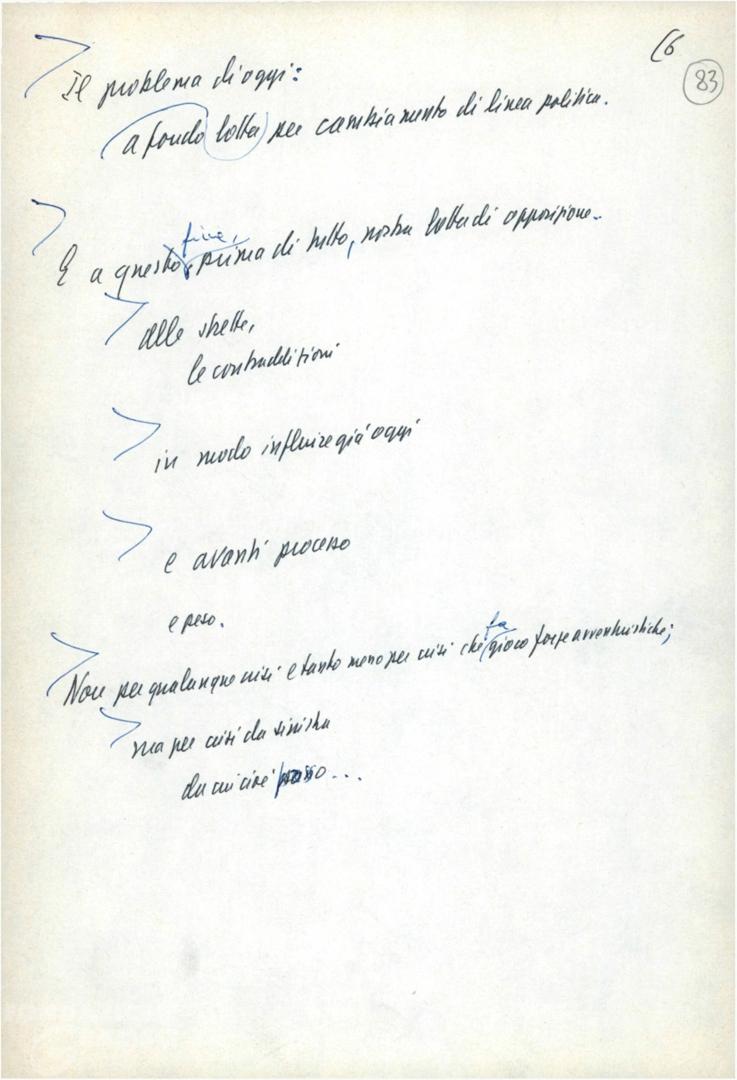 (6
83
Il problema di oggi:
a fondo lotta per cambiamento di linea politica.
fine,
E a questo, prima di tutto, nostra lotta di opposizione..
alle strette,
le contraddizioni
in modo influire già oggi
e avanti processo
e peso.
fa
Non per qualunque crisi e tanto meno per crisi che gioco forze avventuristiche;
ma per crisi da sinistra
da cui cioè passo...